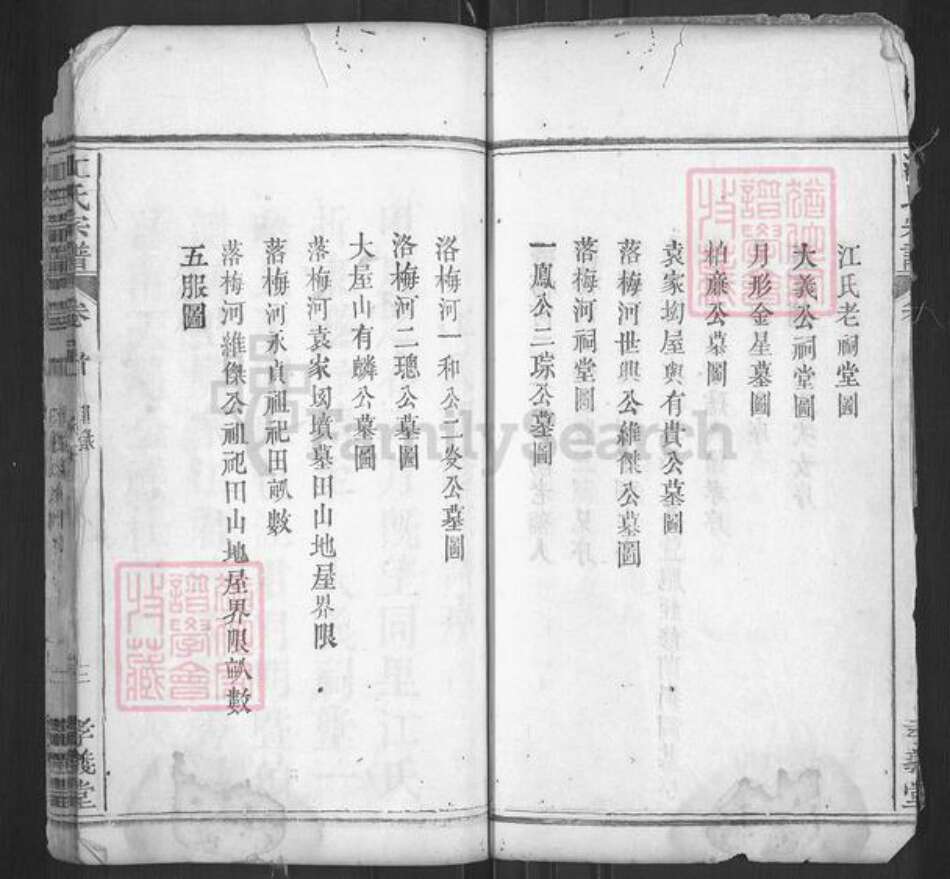 江氏老祠堂圖
大義公祠堂圖
月形金星墓圖
柏廉公墓圖
袁家坳屋輿有貴公墓圖
落梅河世興公維傑公墓圖
落梅河祠堂圖
一鳳公二琮公墓圖
洛梅河一和公二炎公墓圖
洛梅河二璁公墓圖
大屋山有麟公墓圖
落梅河袁家坳墳墓田山地屋界限
落梅河永貞祖祀田畝數
落梅河維傑公祖祀田山地屋界限畝數
五服圖
江氏宗譜
卷首
孝義堂
譜學會
收藏
FamilySearch